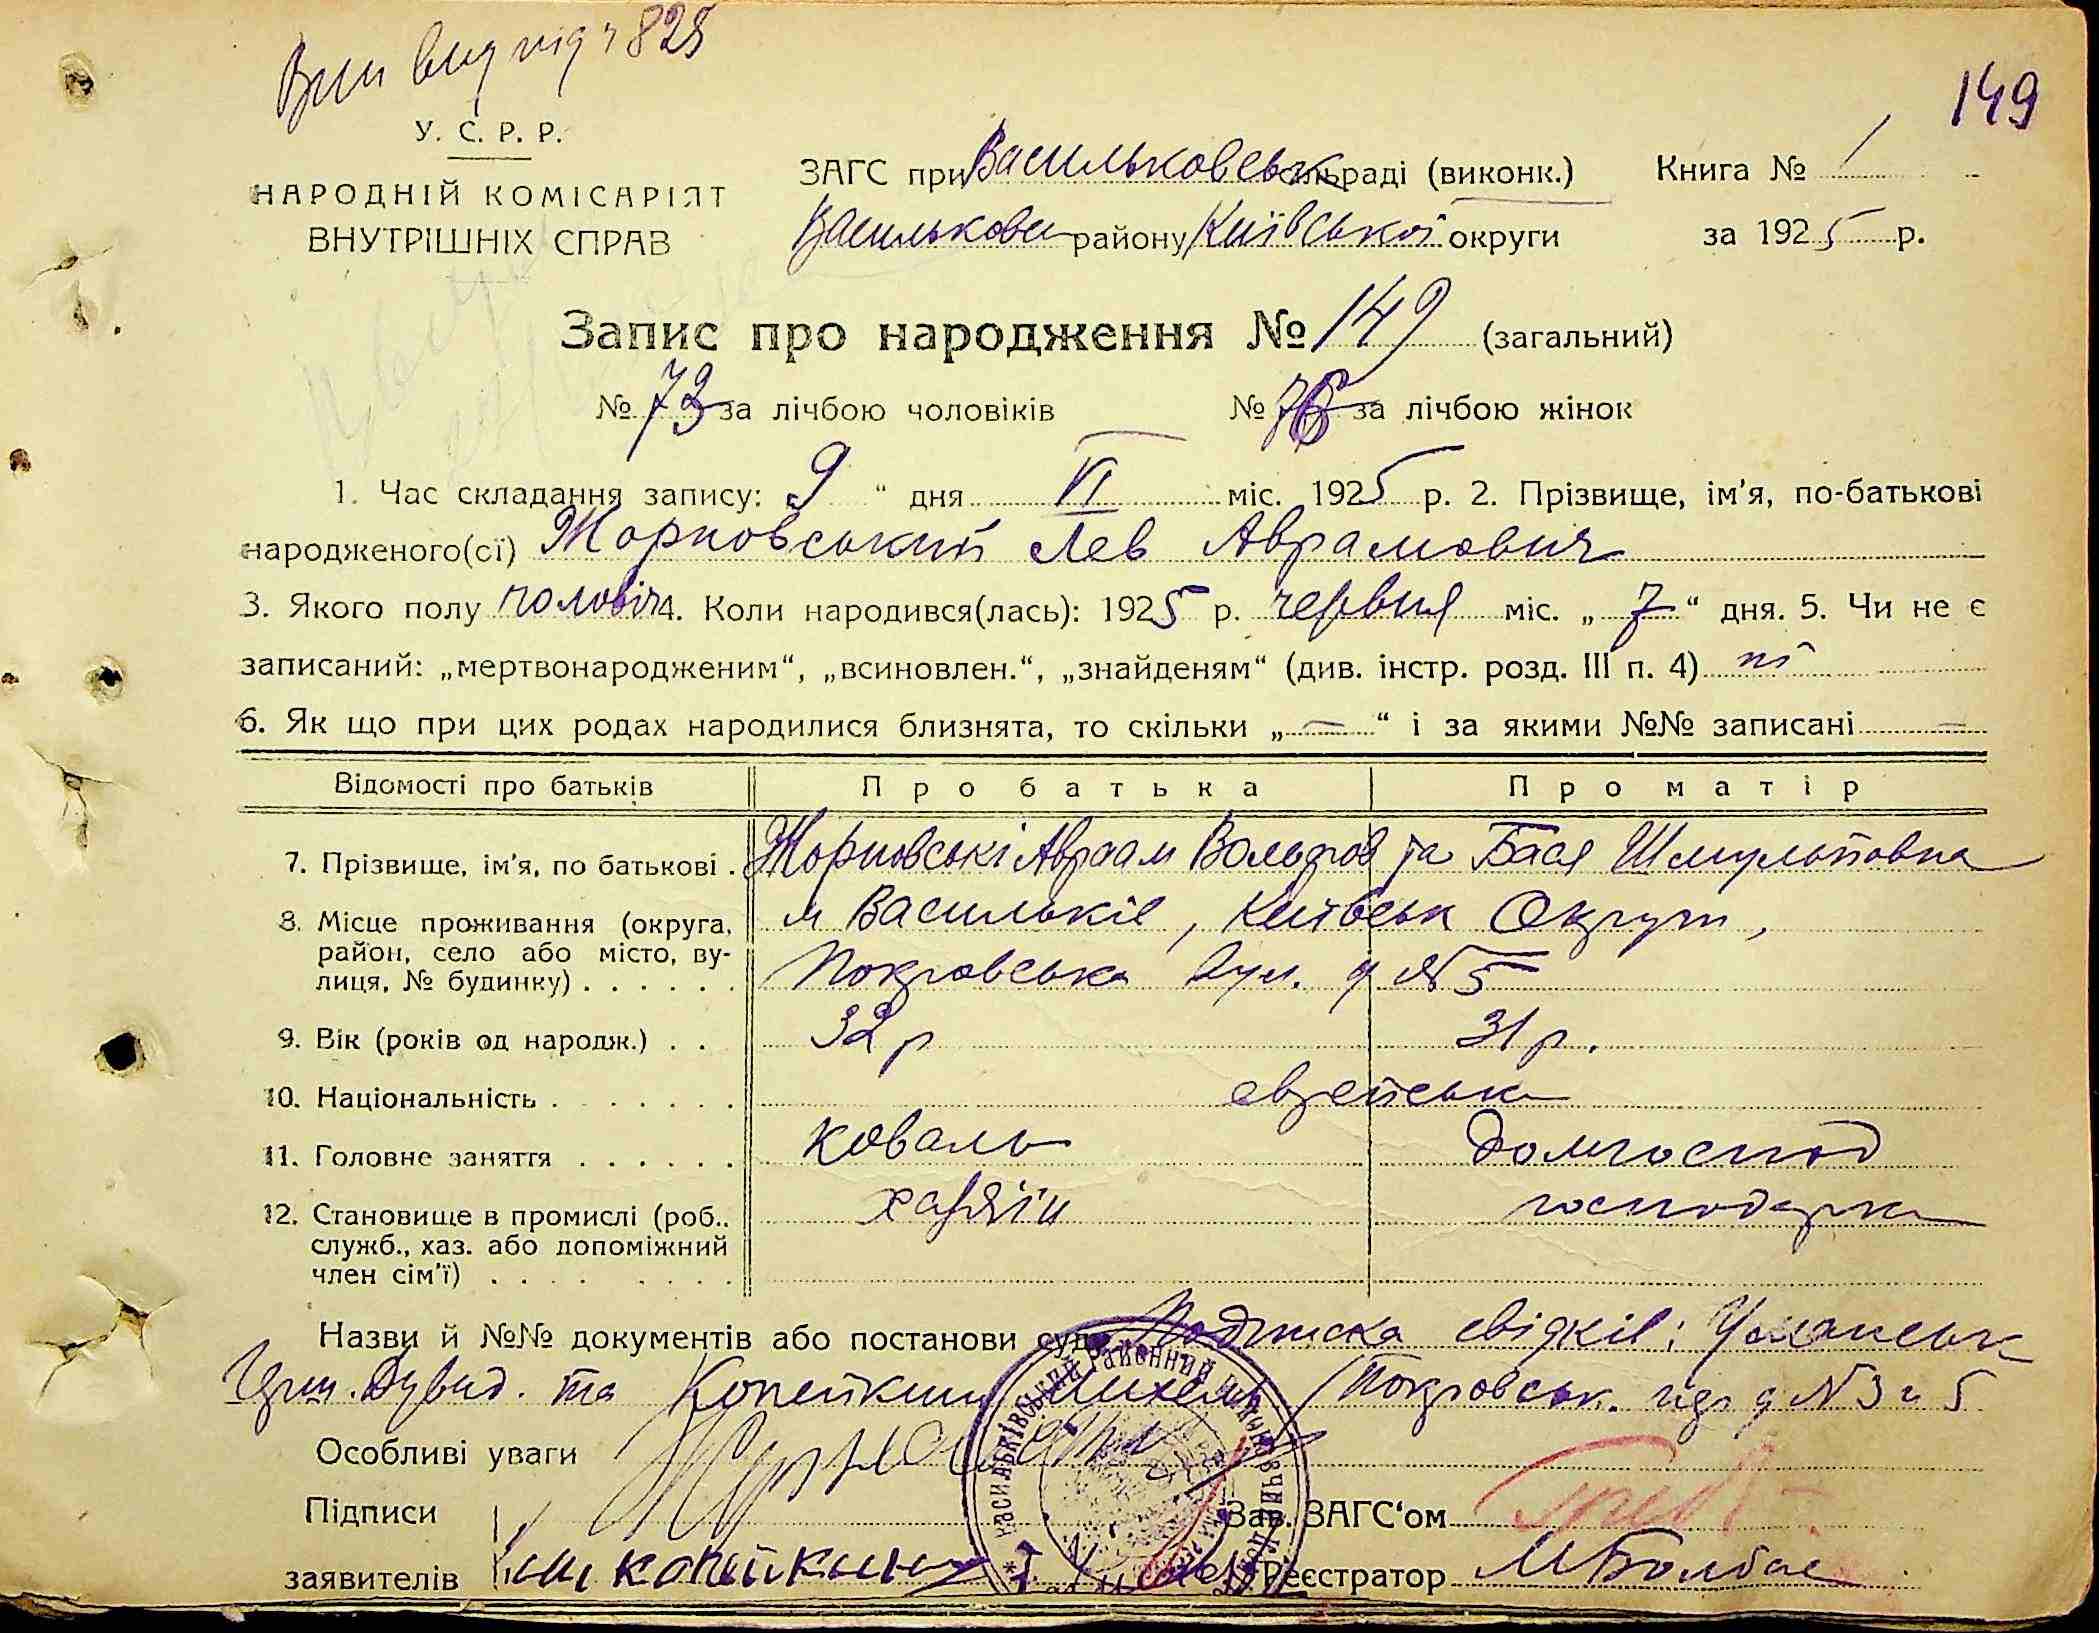 825
149
У. С. Р. Р.
НАРОДНІЙ КОМІСАРІЯТ
ВНУТРІШНІХ СПРАВ
ЗАГС при Васильковськ сільраді (виконк.) Книга № 1
Васильков району Київської округи за 1925 р.
Запис про народження № 149 (загальний)
№ 73 за лічбою чоловіків № 76 за лічбою жінок
1. Час складання запису: 9 “ дня VI міс. 1925 р. 2. Прізвище, ім'я, по-батькові
народженого(сї) Жорновський Лев Аврамович
3. Якого полу чоловіч 4. Коли народився(лась): 1925 р. червня міс. „ 7 “ дня. 5. Чи не є
записаний: „мертвонародженим“, „всиновлен.“, „знайденям“ (див. інстр. розд. III п. 4) ні
6. Як що при цих родах народилися близнята, то скільки „ — “ і за якими №№ записані —
Відомості про батьків Про батька Про матір
7. Прізвище, ім'я, по батькові . Жорновські Авраам Вольфов та Бася Шмульовна
8. Місце проживання (округа, м Васильків, Київськ Округи,
район, село або місто, ву-
лиця, № будинку) . . . . . . Покровська вул. д № 5
9. Вік (років од народж.) . . 32 р 31 р.
10. Національність . . . . . . . еврейська
11. Головне заняття . . . . . . коваль домгоспод
12. Становище в промислі (роб., хазяїн господарка
служб., хаз. або допоміжний
член сім'ї) . . . . . . . .
Назви й №№ документів або постанови суду Подписка свідків: Уманськ
Дувид. та Копейкин Михель Покровськ. д № 3 и 5
Особливі уваги
Підписи Зав. ЗАГС‘ом
заявителів копейкин Реєстратор МБолбас
ВАСИЛЬКІВСЬКИЙ РАЙОННИЙ ВИКОНАВЧИЙ КОМ